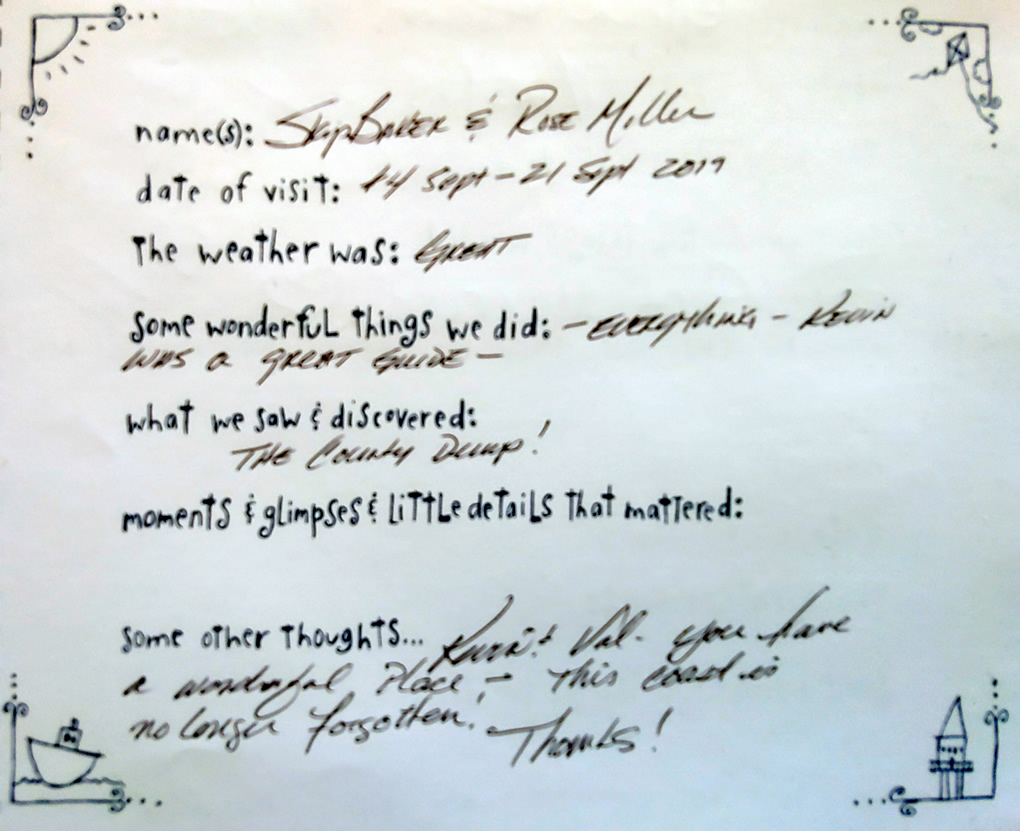 name(s): Skip Baker & Rose Miller
date of visit: 14 Sept - 21 Sept 2019
the weather was: Great
some wonderful things we did: - everything - Kevin
was a great guide -
what we saw & discovered:
The County Dump!
moments & glimpses & little details that mattered:
some other thoughts... Kevin & Val - you have
a wonderful place - this coast is
no longer forgotten! Thanks!